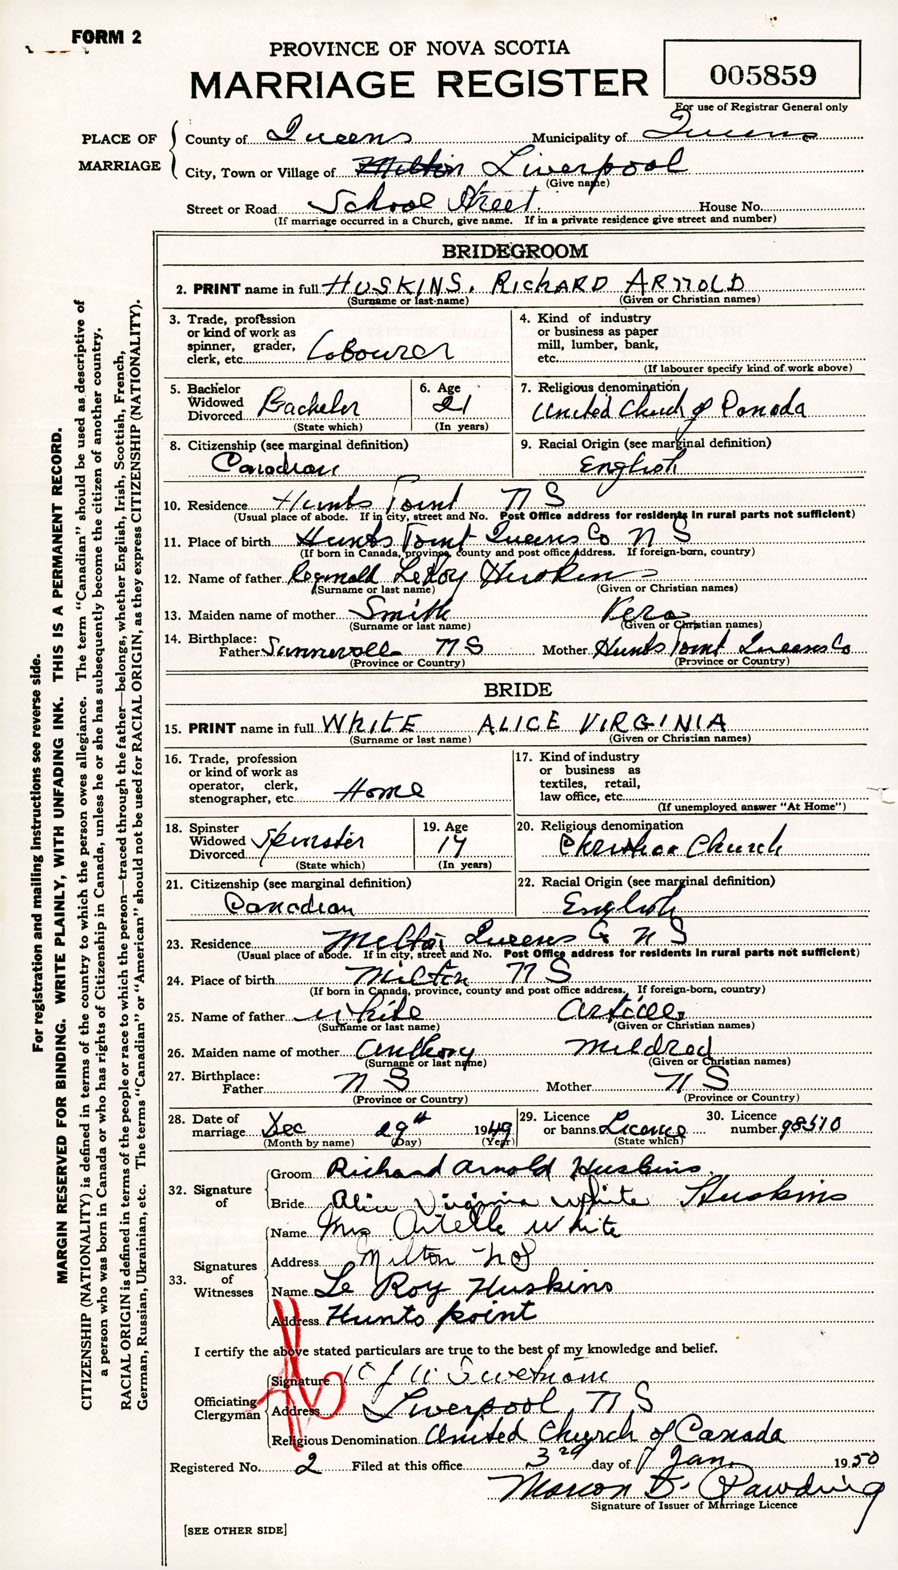 FORM 2
PROVINCE OF NOVA SCOTIA
MARRIAGE REGISTER
005859
For use of Registrar General only
PLACE OF MARRIAGE
County of Queens Municipality of Queens
City, Town or Village of Milton Liverpool
(Give name)
Street or Road School Street. House No.
(If marriage occurred in a Church, give name. If in a private residence give street and number)
BRIDEGROOM
2. PRINT name in full HUSKINS. RICHARD ARNOLD
(Surname or last name) (Given or Christian names)
3. Trade, profession or kind of work as spinner, grader, clerk, etc. Labourer
4. Kind of industry or business as paper mill, lumber, bank, etc.
(If labourer specify kind of work above)
5. Bachelor Widowed Divorced Bachelor
(State which)
6. Age 21
(In years)
7. Religious denomination United Church of Canada
8. Citizenship (see marginal definition)
Canadian
9. Racial Origin (see marginal definition)
English
10. Residence Hunts Point N S
(Usual place of abode. If in city, street and No. Post Office address for residents in rural parts not sufficient)
11. Place of birth Hunts Point Queens Co N S
(If born in Canada, province, county and post office address. If foreign-born, country)
12. Name of father Reginald LeRoy Huskins
(Surname or last name) (Given or Christian names)
13. Maiden name of mother Smith Vera
(Surname or last name) (Given or Christian names)
14. Birthplace:
Father Summerville N S Mother Hunts Point Queens Co
(Province or Country) (Province or Country)
BRIDE
15. PRINT name in full WHITE ALICE VIRGINIA
(Surname or last name) (Given or Christian names)
16. Trade, profession or kind of work as operator, clerk, stenographer, etc. Home
17. Kind of industry or business as textiles, retail, law office, etc.
(If unemployed answer "At Home")
18. Spinster Widowed Divorced Spinster
(State which)
19. Age
(In years)
20. Religious denomination
Christian Church
21. Citizenship (see marginal definition)
Canadian
22. Racial Origin (see marginal definition)
English
23. Residence Milton Queens Co N S
(Usual place of abode. If in city, street and No. Post Office address for residents in rural parts not sufficient)
24. Place of birth Milton N S
(If born in Canada, province, county and post office address. If foreign-born, country)
25. Name of father White
(Surname or last name) (Given or Christian names)
26. Maiden name of mother Anthony Mildred
(Surname or last name) (Given or Christian names)
27. Birthplace:
Father N S Mother N S
(Province or Country) (Province or Country)
28. Date of marriage Dec 29th 1949
(Month by name) (Day) (Year)
29. Licence or banns Licence
(State which)
30. Licence number 98510
32. Signature of
Groom Richard Arnold Huskins.
Bride Alice Virginia White Huskins
33. Signatures of Witnesses
Name Mrs Artelle White
Address Milton N S
Name Le Roy Huskins
Address Hunts point
I certify the above stated particulars are true to the best of my knowledge and belief.
Officiating Clergyman
Signature
Address Liverpool, N S
Religious Denomination United Church of Canada
Registered No. 2 Filed at this office 3rd day of Jan. 1950
Signature of Issuer of Marriage Licence
[SEE OTHER SIDE]
For registration and mailing instructions see reverse side.
MARGIN RESERVED FOR BINDING. WRITE PLAINLY, WITH UNFADING INK. THIS IS A PERMANENT RECORD.
CITIZENSHIP (NATIONALITY) is defined in terms of the country to which the person owes allegiance. The term "Canadian" should be used as descriptive of
a person who was born in Canada or who has rights of Citizenship in Canada, unless he or she has subsequently become the citizen of another country.
RACIAL ORIGIN is defined in terms of the people or race to which the person—traced through the father—belongs, whether English, Irish, Scottish, French,
German, Russian, Ukrainian, etc. The terms "Canadian" or "American" should not be used for RACIAL ORIGIN, as they express CITIZENSHIP (NATIONALITY).